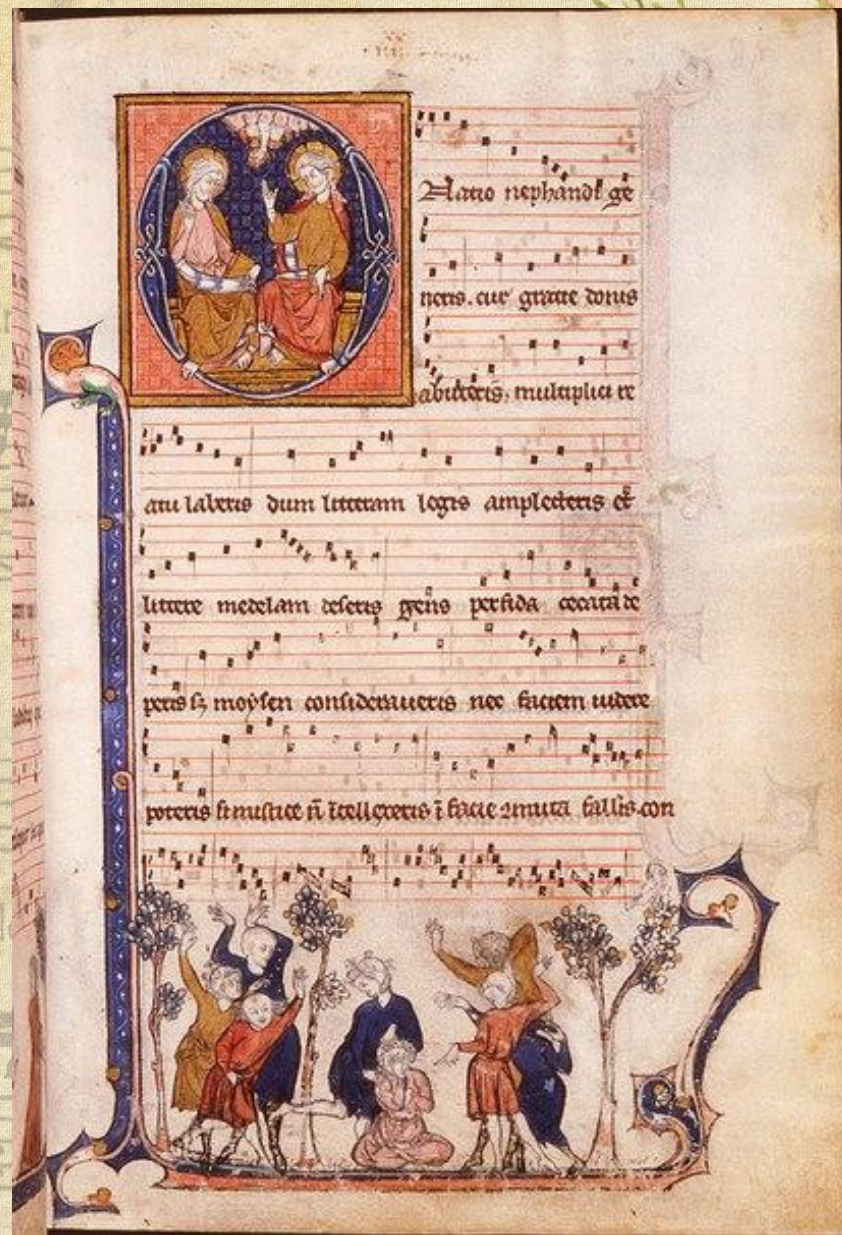 O Natio nephandi ge
neris. cur gratie donis
abuteris, multiplici re
atu laberis dum litteram legis amplecteris et
littere medelam deseris gens perfida cecata de
peris moysen consideraveris nec faciem videre
poteris si mistice facie fallis con